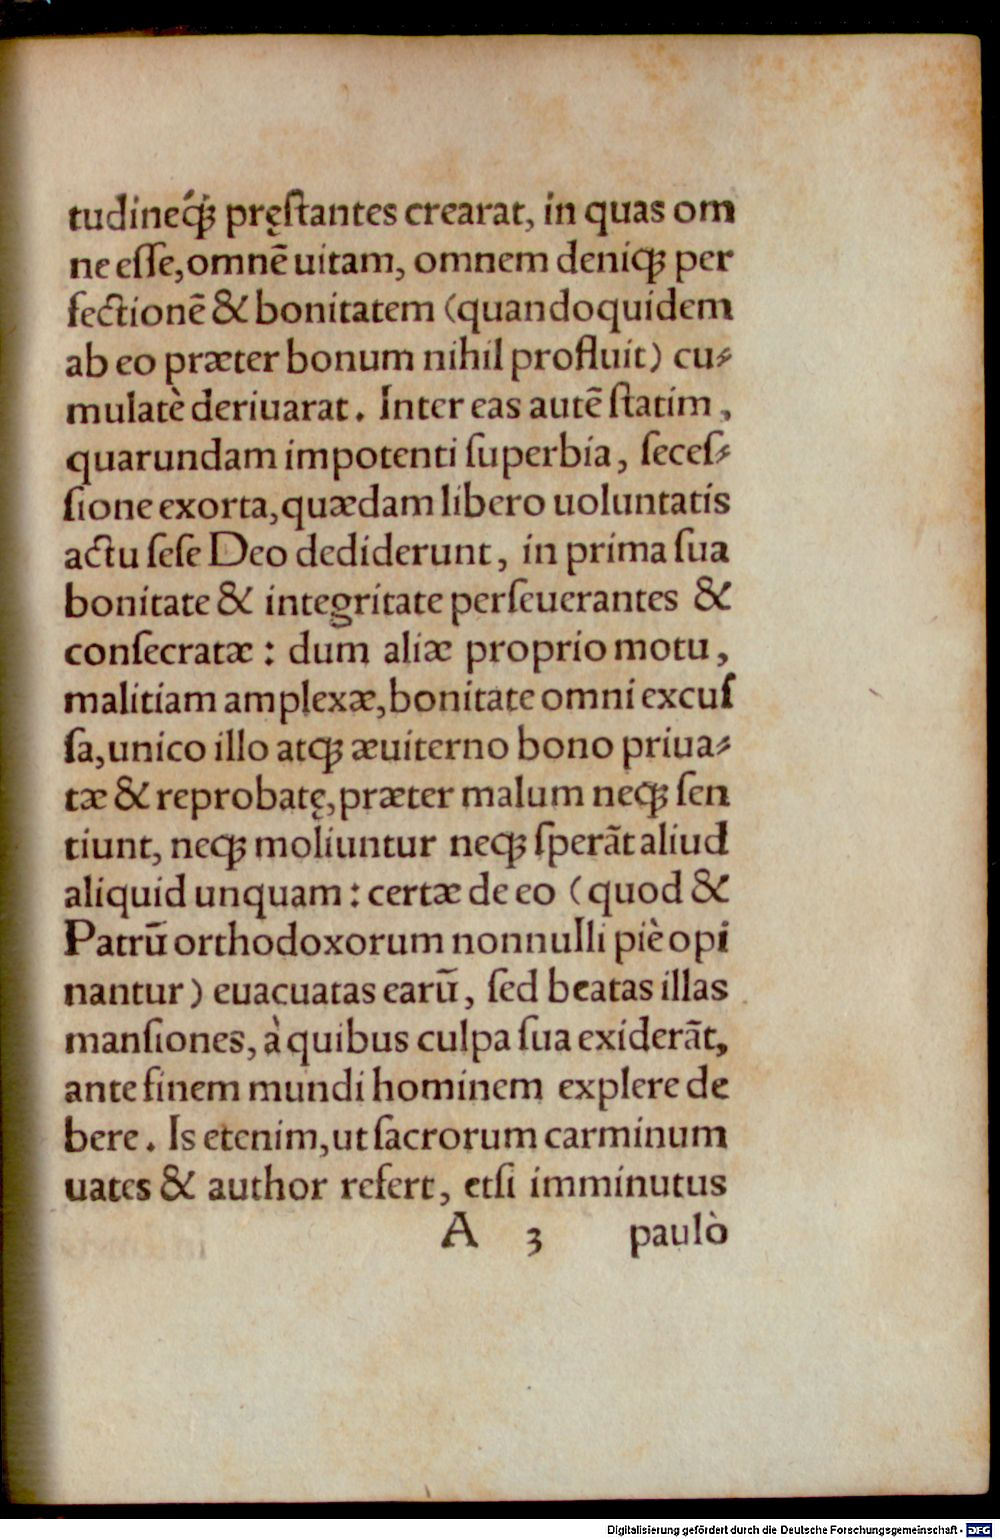 tudineq́ꝫ pręſtantes crearat, in quas om
ne eſſe,omnē uitam, omnem deniqꝫ per
fectionē & bonitatem (quandoquidem
ab eo præter bonum nihil profluit) cu⸗
mulatè deriuarat. Inter eas autē ſtatim,
quarundam impotenti ſuperbia, ſeceſ⸗
ſione exorta,quædam libero uoluntatis
actu ſeſe Deo dediderunt, in prima ſua
bonitate & integritate perſeuerantes &
conſecratæ: dum aliæ proprio motu,
malitiam amplexæ,bonitate omni excuſ
ſa,unico illo atqꝫ æuiterno bono priua⸗
tæ & reprobatę,præter malum neqꝫ ſen
tiunt, neqꝫ moliuntur neqꝫ ſperãt aliud
aliquid unquam: certæ de eo (quod &
Patrū orthodoxorum nonnulli piè opi
nantur) euacuatas earū, ſed beatas illas
manſiones, à quibus culpa ſua exiderãt,
ante finem mundi hominem explere de
bere. Is etenim,ut ſacrorum carminum
uates & author refert, etſi imminutus
A 3 paulò
Digitalisierung gefördert durch die Deutsche Forschungsgemeinschaft - DFG